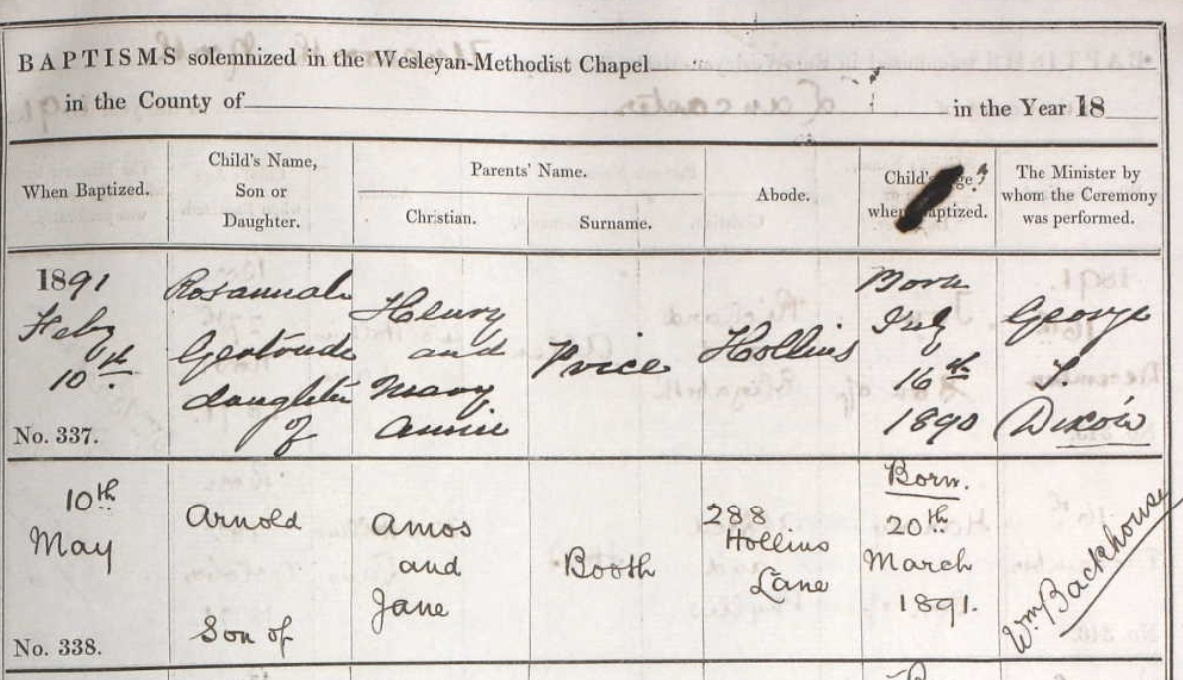 BAPTISMS solemnized in the Wesleyan-Methodist Chapel
in the County of in the Year 18
When Baptized.
Child's Name,
Son or
Daughter.
Parents' Name.
Christian.
Surname.
Abode.
Child's Age,
when Baptized.
The Minister by
whom the Ceremony
was performed.
1891
Feby
10th
No. 337.
Rosannah
Gertrude
daughter
of
Henry
and
Mary
Annie
Price
Hollins
Born
July
16th
1890
George
S.
Dixon
10th
May
No. 338.
Arnold
Son of
Amos
and
Jane
Booth
288
Hollins
Lane
Born.
20th
March
1891.
Wm Backhouse